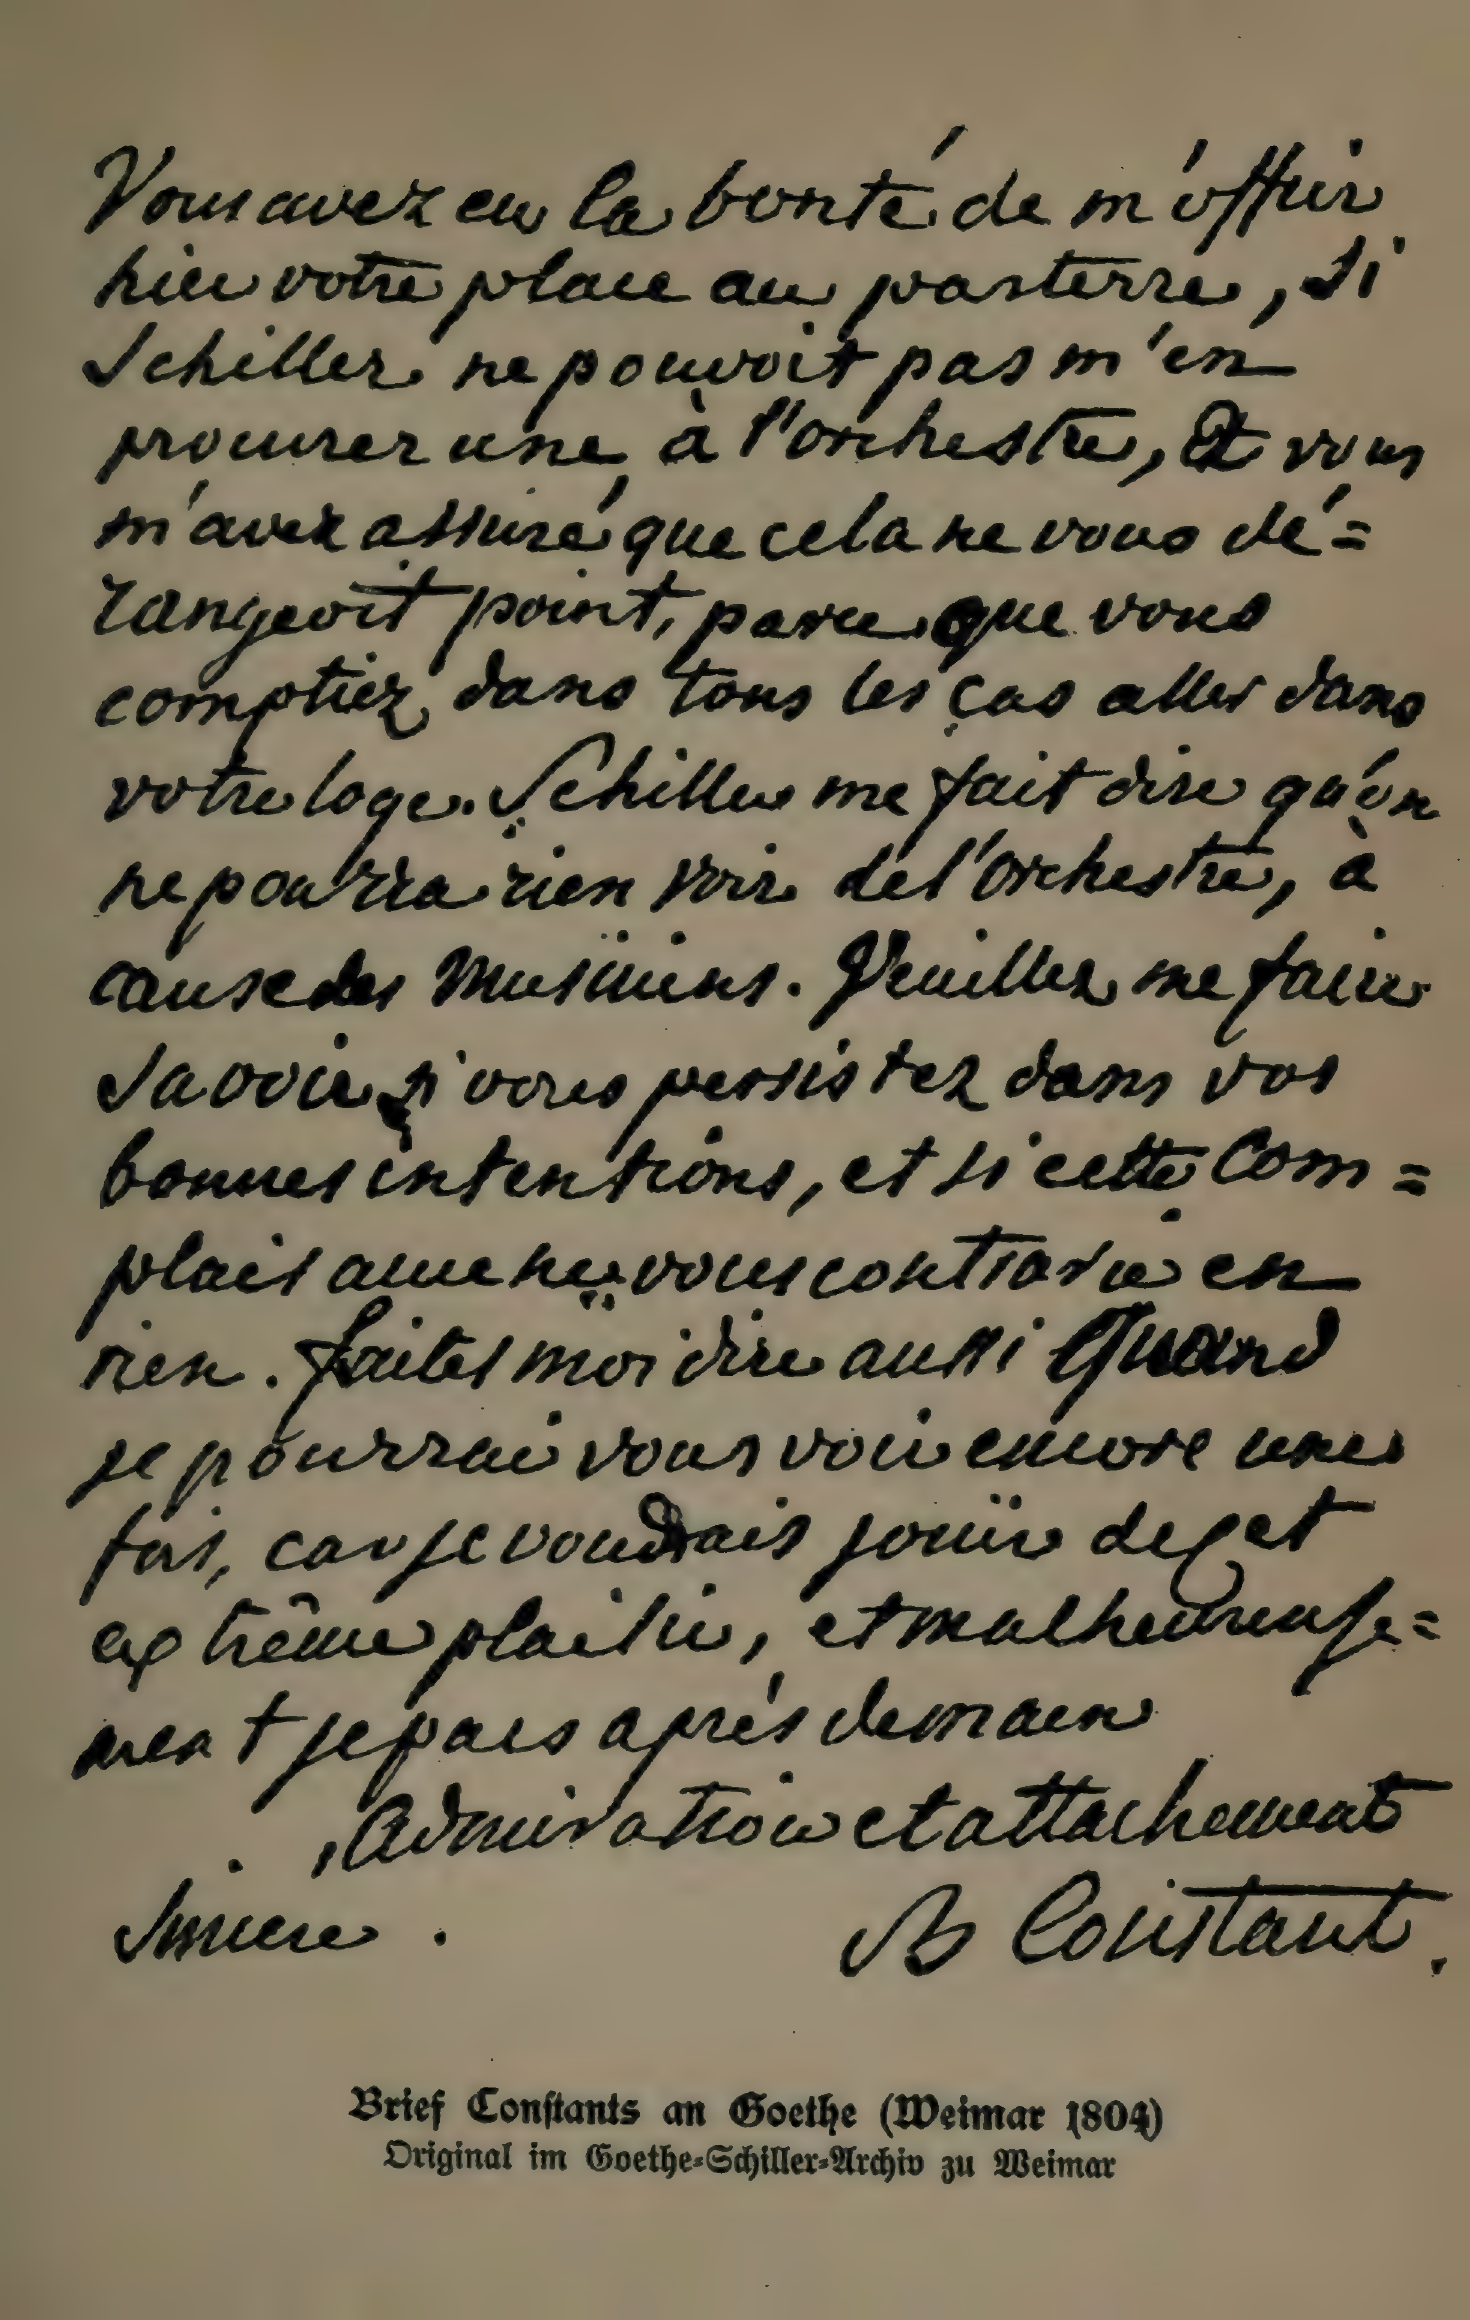 Vous avez eu la bonté de m'offrir
hier votre place au parterre, si
Schiller ne pouvoit pas m'en
procurer une, à l'orchestre, & vous
m'avez assuré que cela ne vous dé=
rangeoit point, parce que vous
comptiez dans tous les cas aller dans
votre loge. Schiller me fait dire qu'on
ne pourra rien voir de l'orchestre, à
cause des Musiciens. Veuillez me faire
savoir si vous persistez dans vos
bonnes intentions, et si cette Com=
plaisance ne vous contrarie en
rien. faites moi dire aussi Quand
je pourrai vous voir encore une
fois, car je voudrais jouïr de cet
extrême plaisir, et malheureuse=
ment je pars après demain
Admiration et attachement
sincere. B Constant.
Brief Conſtants an Goethe (Weimar 1804)
Original im Goethe-Schiller-Archiv zu Weimar